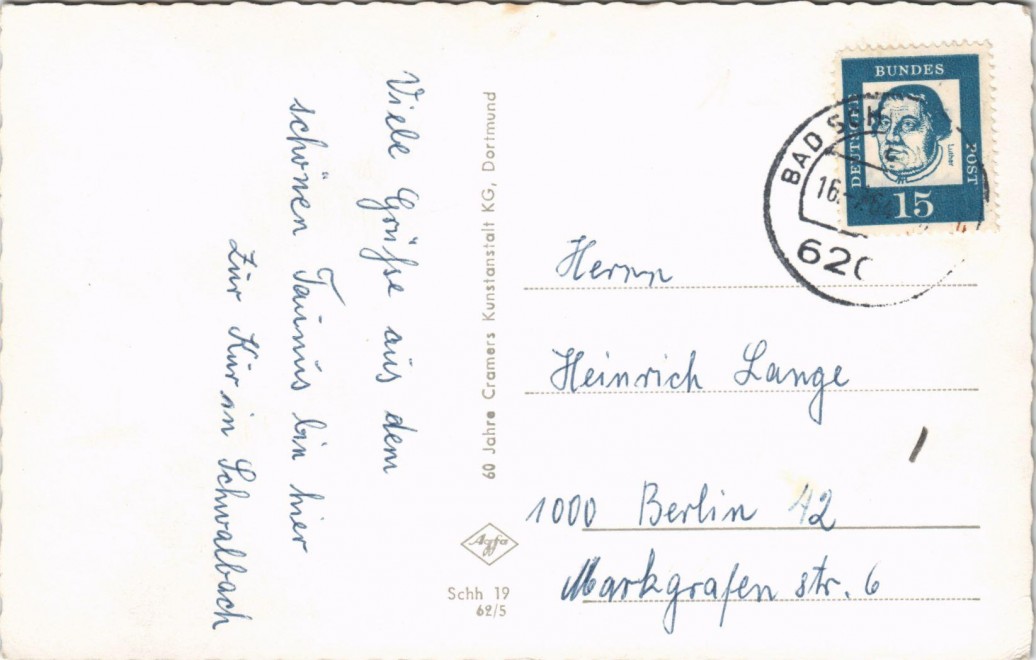 Viele Grüße aus dem
schönen Taunus bin hier
Zur Kur in Schwalbach
60 Jahre Cramers Kunstanstalt KG, Dortmund
Agfa
Schh 19
62/5
DEUTSCHE
BUNDES
POST
Luther
15
BAD SCH
16.
64
620
Herrn
Heinrich Lange
1000 Berlin 42
Markgrafen str. 6